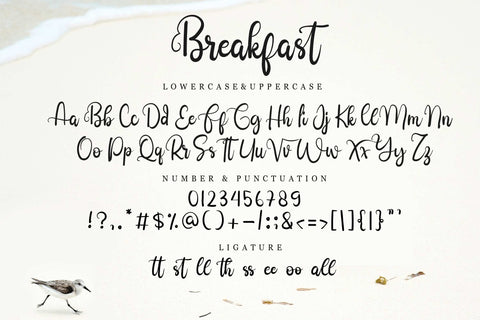 Breakfast
LOWERCASE&UPPERCASE
Aa Bb Cc Dd Ee Ff Gg Hh Ii Jj Kk Ll Mm Nn
Oo Pp Qq Rr Ss Tt Uu Vv Ww Xx Yy Zz
NUMBER & PUNCTUATION
0123456789
!?,.*#$%@()+-/:;&<=>[\]{|}"'
LIGATURE
tt st ll th ss ee oo all